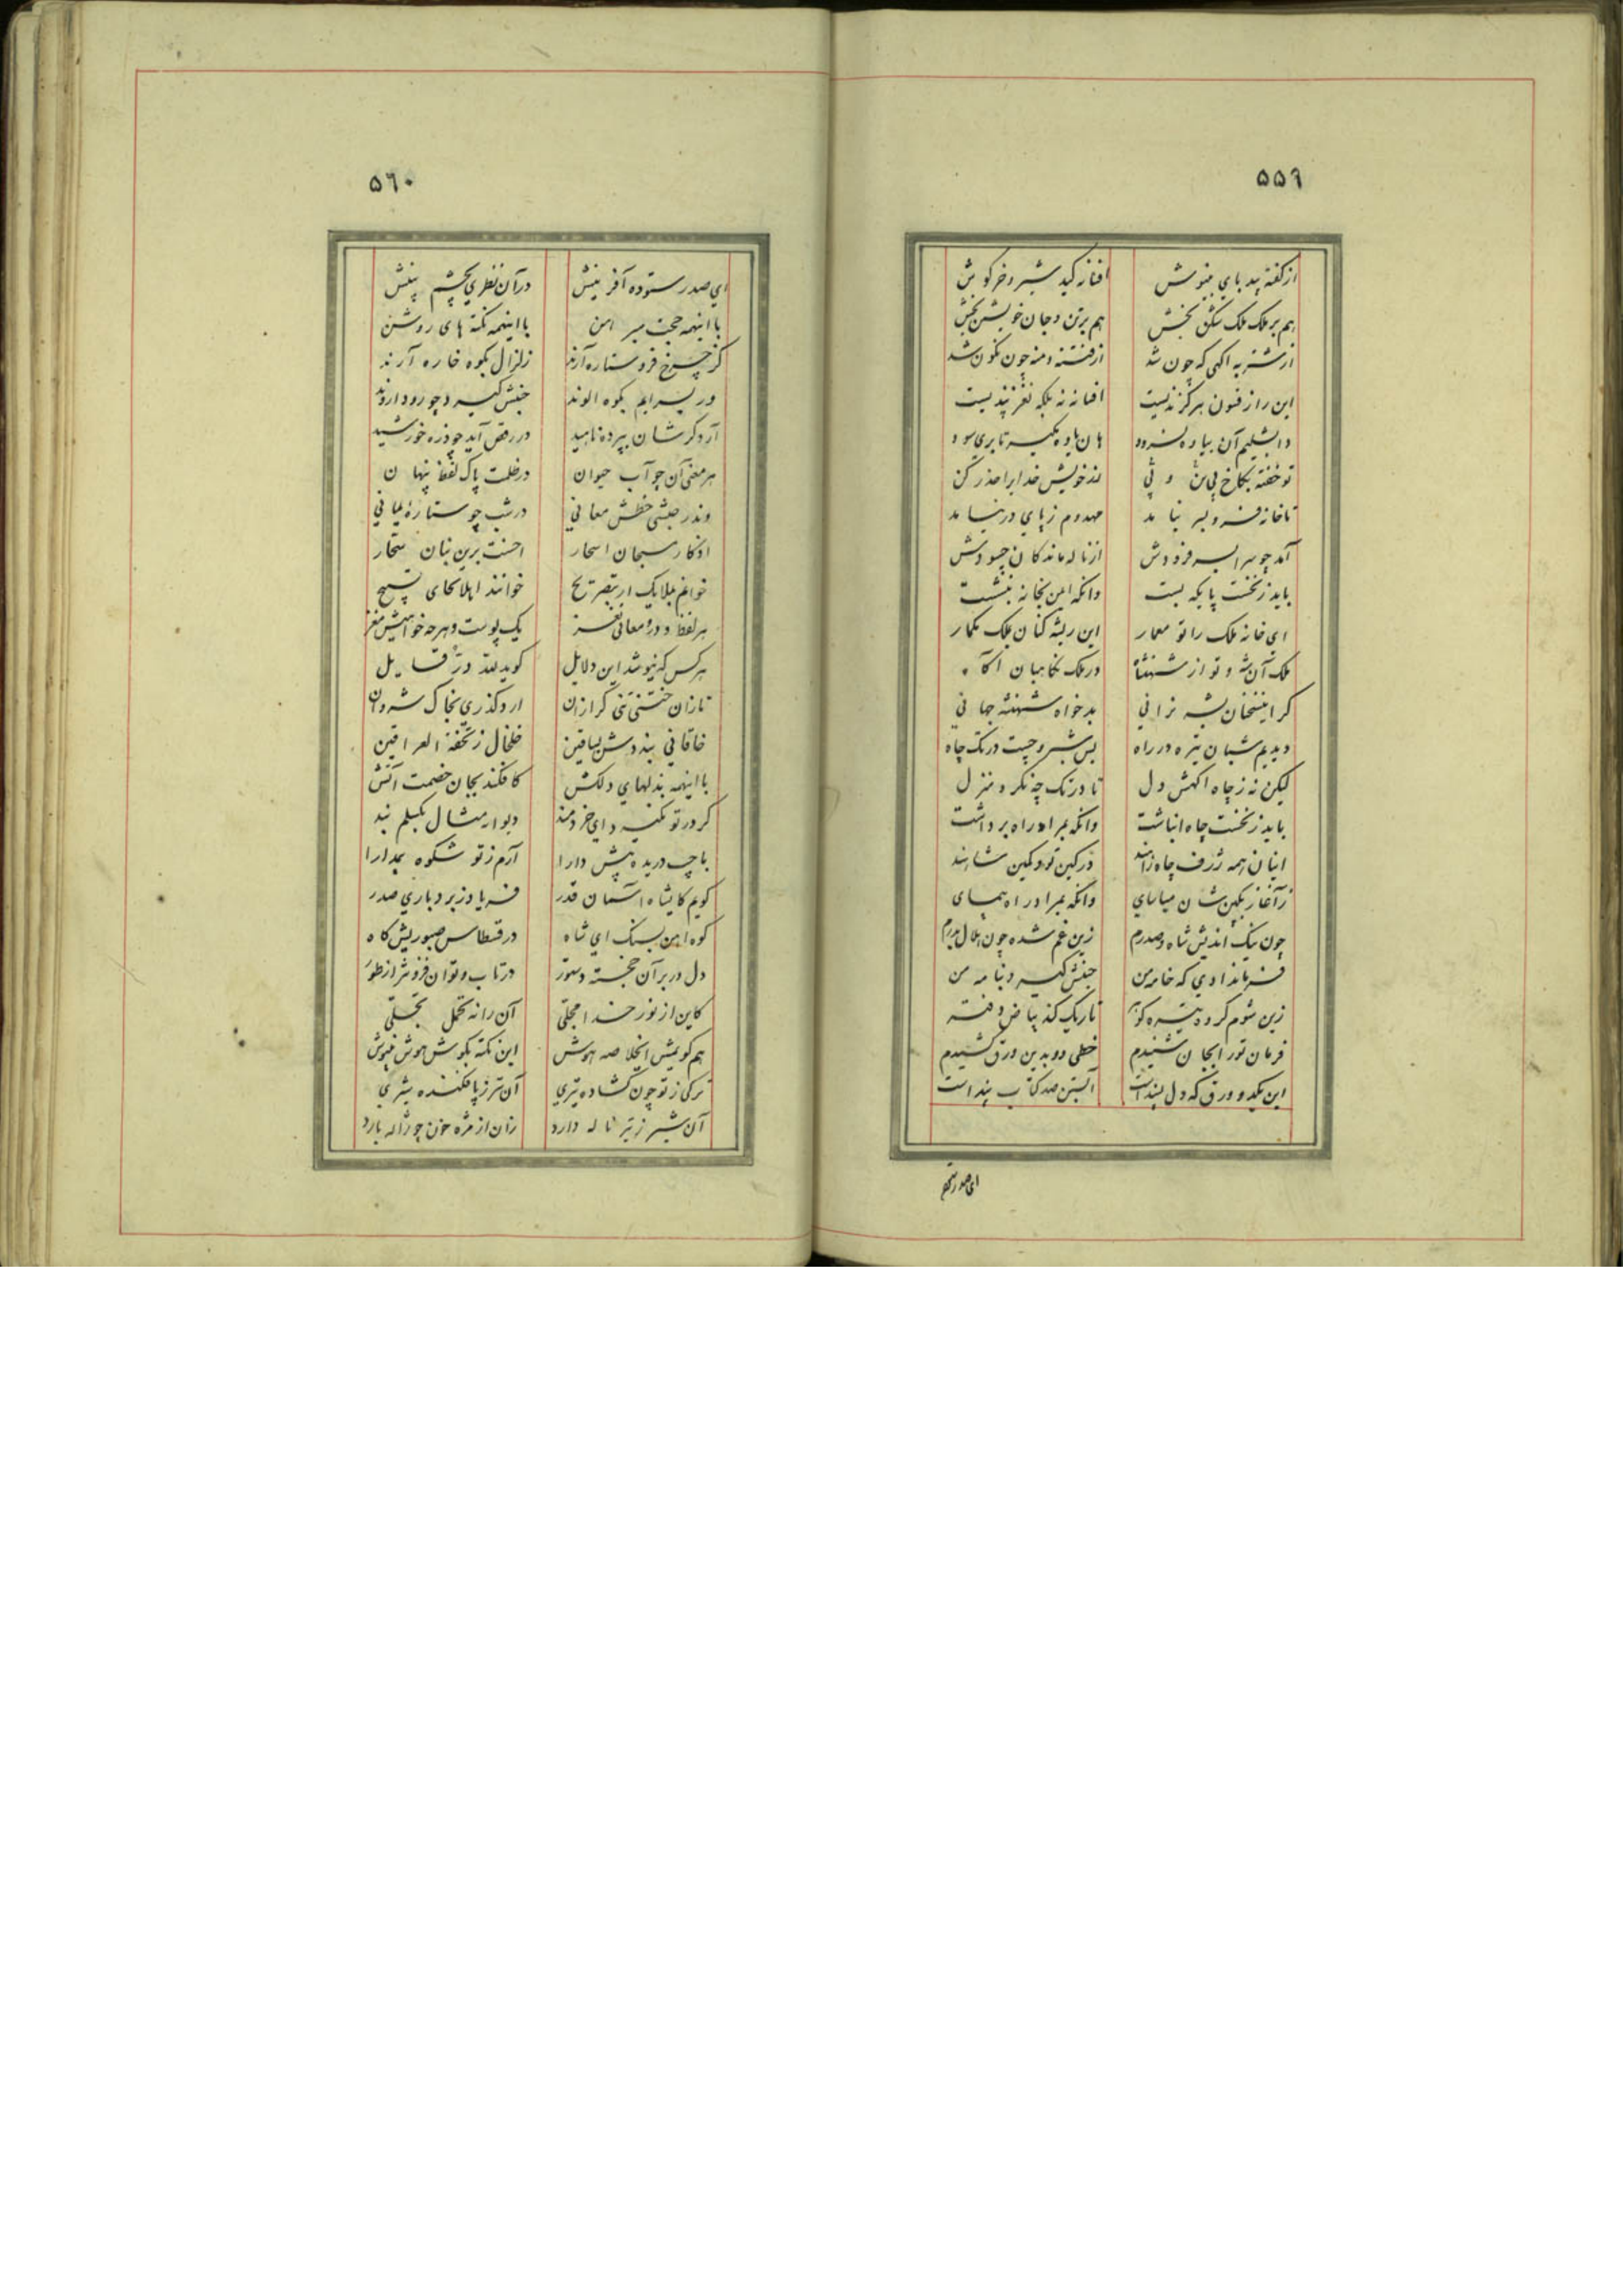 ۵۵۹
از گفته بیدبای بنیوش افسانه کید شیر و خرگوش
هم بر ملک ملک بخش هم بر تن و جان خویشتن بخش
از شنزبه اکهی که چون شد از فتنه دمنه چون نکون شد
این راز فسون هرگزند نیست افسانه نه بلکه نغز پندیست
دابشلیم آن بیاوه نسرود هان یاوه مکیر تا بری سود
تو خفته بکاخ بی بن و پی
تا خانه فرو بسر نیامد مهدوم ز پای در نیامد
آمد چو سرا بسر فرودش از ناله ماندکان چه سودش
باید ز نخست پایکه بست وانکه ایمن بخانه بنشست
ای خانه ملک را تو معمار این ریشه کنان ملک مکمار
ملک آن شه و تو از شهنشاه در ملک نکاهبان آکاه
کر اینسخنان بشه نرانی بدخواه شهنشه جهانی
دیدیم شبان تیره در راه بس شبرو چست در تک چاه
لیکن نه ز چاه اکهش دل تا در تک چه نکرد منزل
باید ز نخست چاه انباشت وانکه بمراد راه برداشت
اینان همه ژرف چاه راهند در کین تو در کمین شاهند
ز آغاز بکین شان میاسای وانکه بمراد راه پیمای
چون نیک اندیش شاه و صدرم زین غم شده چون هلال بدرم
فرمان دادی که خامه من جنبش کیرد بنامه من
زین شوم کرد تیره کوهر تاریک کند بیاض دفتر
فرمان تو را بجان شنیدم خطی دو بدین ورق کشیدم
این یکدو ورق که دل پسند است آبستن صد کتاب پند است
ای صدر ستوده
۵۶۰
ای صدر ستوده آفرینش در آن نظری بچشم بینش
با اینهمه حجت مبرهن با اینهمه نکته های روشن
کز چرخ فرو ستاره آرند زلزال بکوه خاره آرند
ور بسرایم بکوه الوند جنبش کیرد چو رود اروند
آرد کرشان بپرده ناهید در رقص آید چو ذره خورشید
هر معنی آن چو آب حیوان در ظلمت پاک لفظ پنهان
وندر حبشی خطش معانی در شب چو ستاره یمانی
اذکار مسبحان اسحار احسنت برین بنان سحار
خوانم بملایک ار بتصریح خوانند اهلا بجای تسبیح
هر لفظ و درو معانی نغز یک پوست و هرچه خواهیش مغز
هر کس که نیوشد این دلایل کوید لله در قایل
تازان ختنی تنی کرازان ار درکذری بخاک شروان
خاقانی بیندش بساقین خلخال ز تحفة العراقین
با اینهمه بذلهای دلکش کافکند بجان خصمت آتش
کر در تو نکیرد ای خردمند دیوار مثال بکسلم بند
با جیب دریده پیش دارا آرم ز تو شکوه بمدارا
کویم کایشاه آسمان قدر فریاد ز بردباری صدر
کوه اهن بسنک ای شاه در قسطاس صبوریش کاه
دل در بر آن خجسته دستور در تاب و توان فزونتر از طور
کاین از نور خدا مجلی آن را نه تحمل تجلی
هم کویمش ایخلاصه هوش این نکته بکوش هوش بنیوش
ترکی ز تو چون کشاده تیری آن تیر ز پا فکنده شیری
آن شیر ز تیر ناله دارد زان از مژه خون چو ژاله بارد